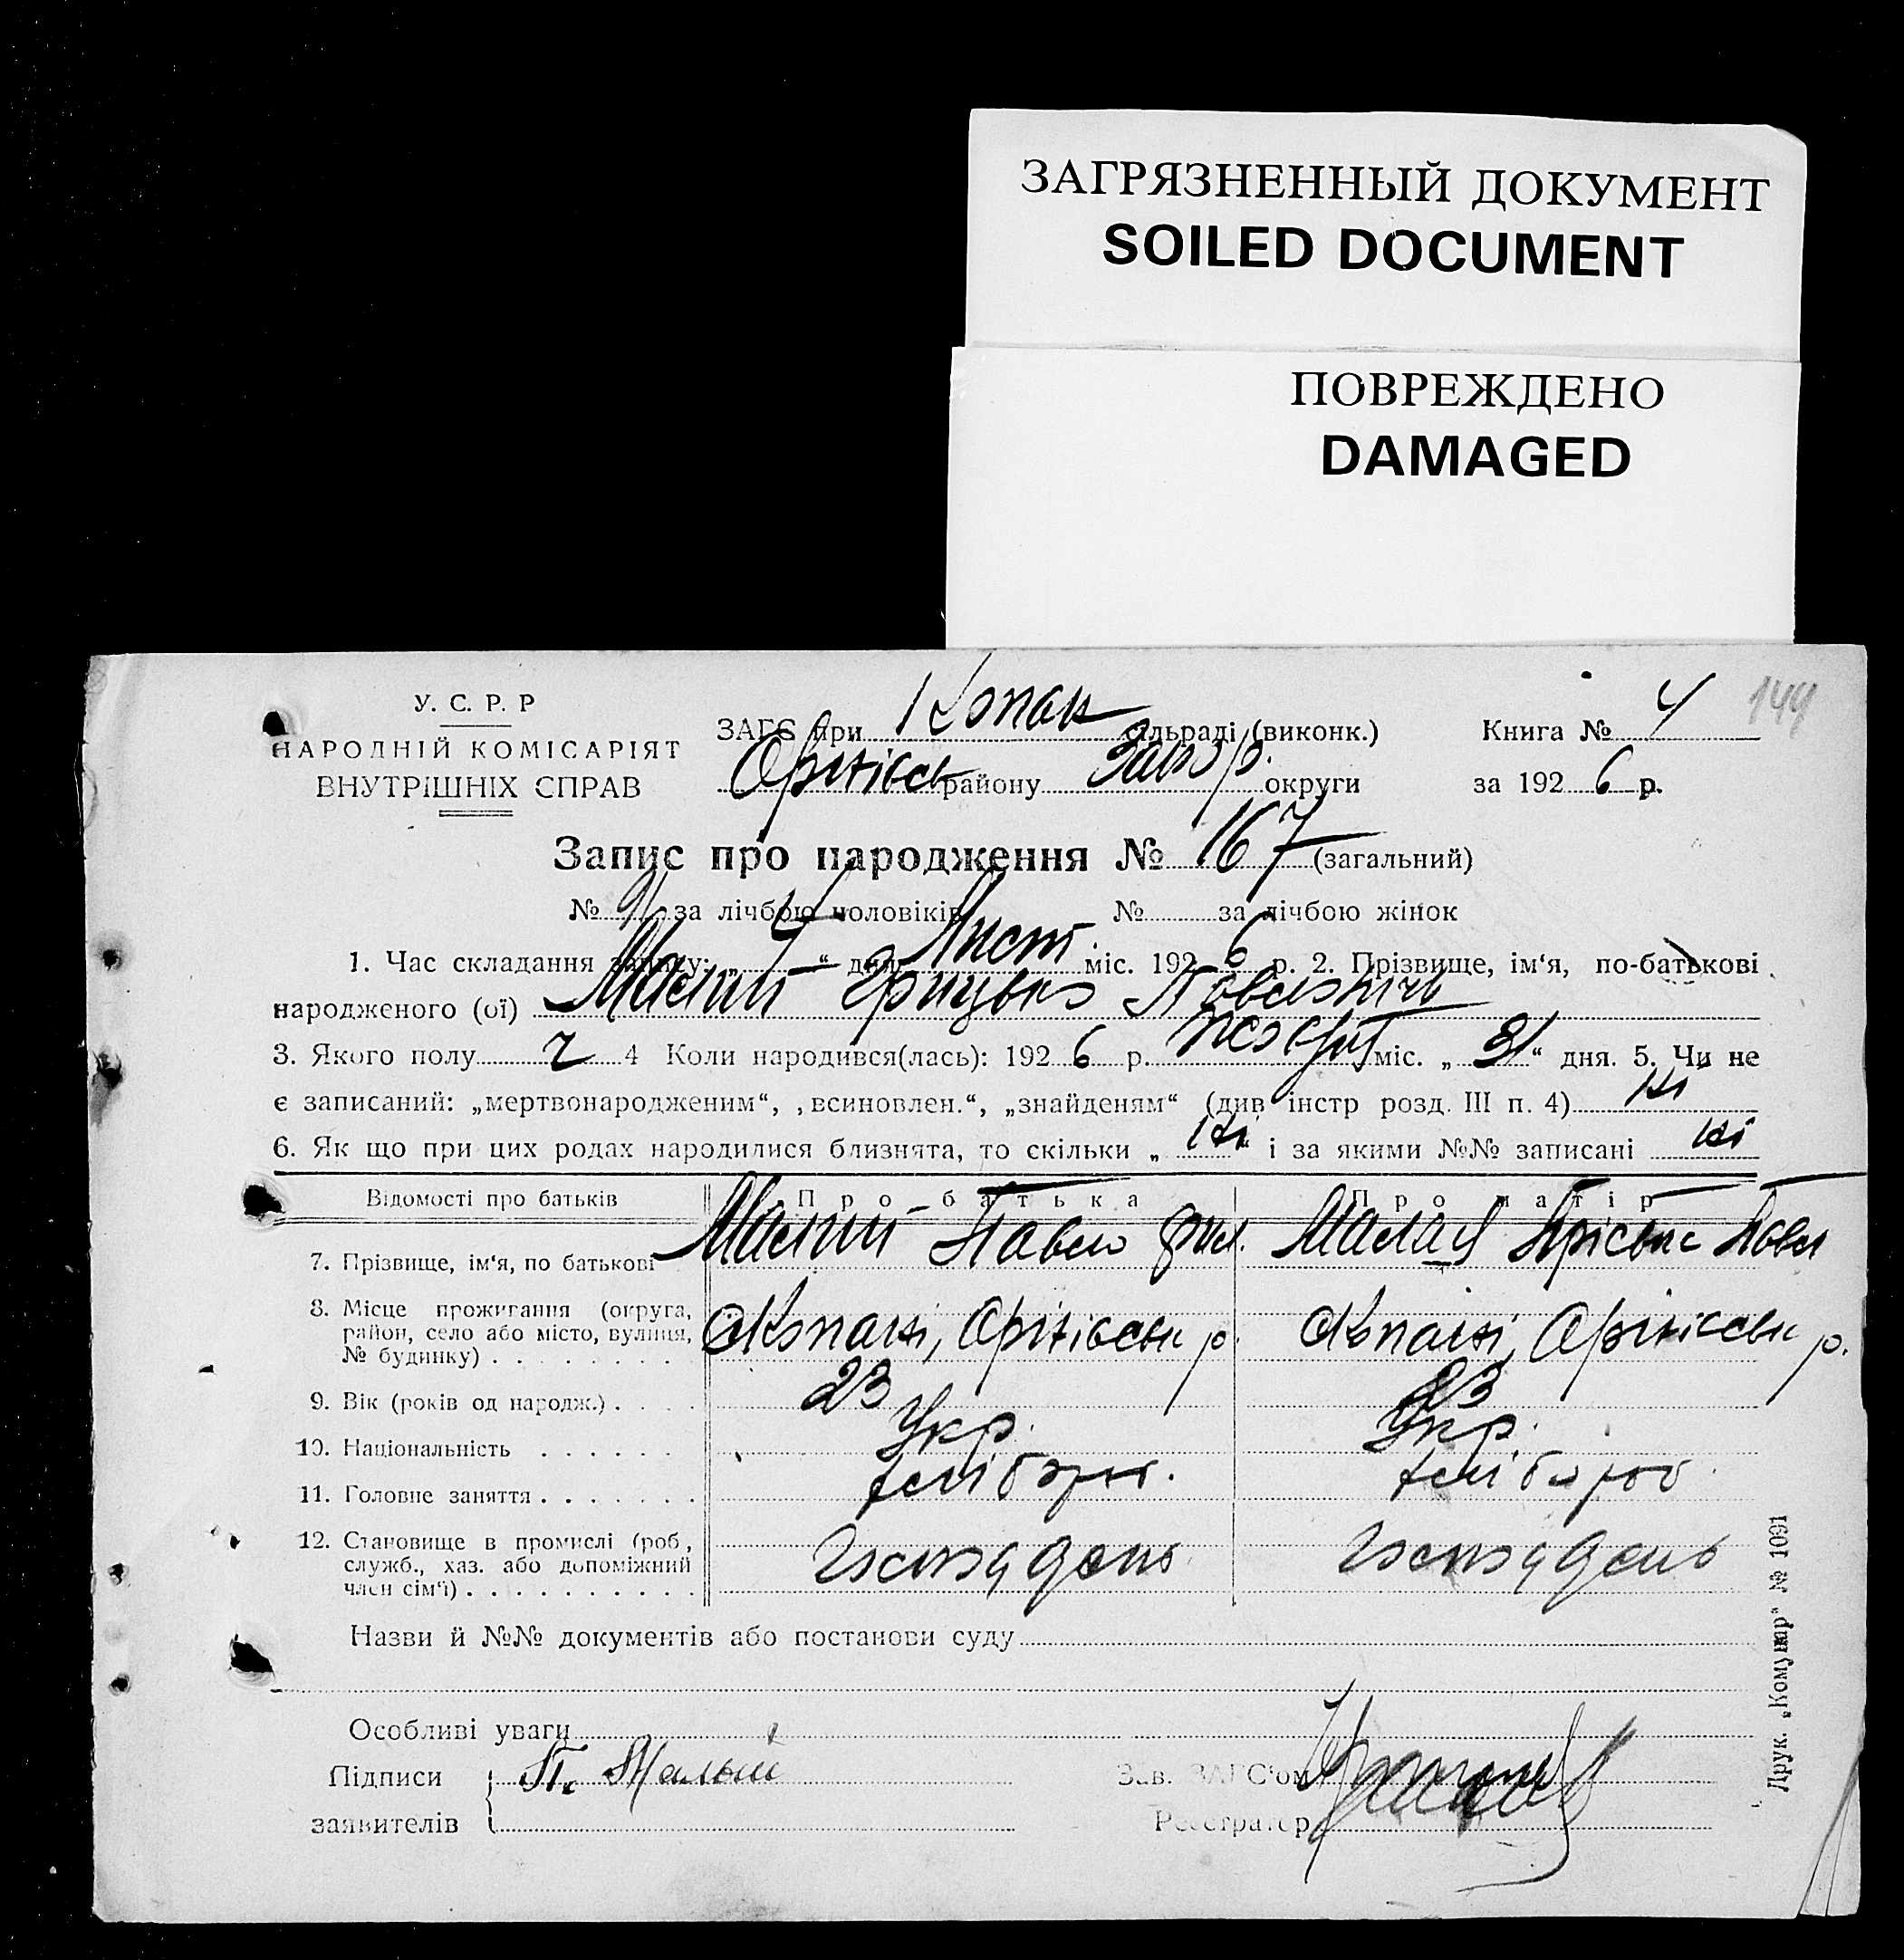 ЗАГРЯЗНЕННЫЙ ДОКУМЕНТ
SOILED DOCUMENT
ПОВРЕЖДЕНО
DAMAGED
144
У. С. Р. Р
НАРОДНІЙ КОМІСАРІЯТ
ВНУТРІШНІХ СПРАВ
ЗАГС при 1 Копан сільраді (виконк.) Книга № 4
Оріхівськ району Запор. округи за 1926 р.
Запис про народження № 167 (загальний)
№ 91 за лічбою чоловіків № за лічбою жінок
1. Час складання запису: „4“ дня Лист. міс. 1926 р. 2. Прізвище, ім‘я, по-батькові
народженого (ої) Малий Грицько Павлович
3. Якого полу ч 4 Коли народився(лась): 1926 р. жовт міс. „31“ дня. 5. Чи не
є записаний: „мертвонародженим“, „всиновлен.“, „знайденям“ (див інстр розд. III п. 4) ні
6. Як що при цих родах народилися близнята, то скільки „ ні “ і за якими №№ записані ні
Відомості про батьків Про батька Про матір
7. Прізвище, ім‘я, по батькові Малий Павло Малая Пріська Павл
8. Місце проживання (округа, район, село або місто, вулиця, № будинку) Копані, Оріхівськ р. Копані, Оріхівськ р.
9. Вік (років од народж.) 23 23
10. Національність Укр. Укр.
11. Головне заняття хлібороб. хлібороб
12. Становище в промислі (роб, служб., хаз. або допоміжний член сім‘ї)
Назви й №№ документів або постанови суду
Особливі уваги
Підписи П. Малый Зав. ЗАГС‘ом
заявителів Реєстратор
Друк. „Комунар“ № 1091